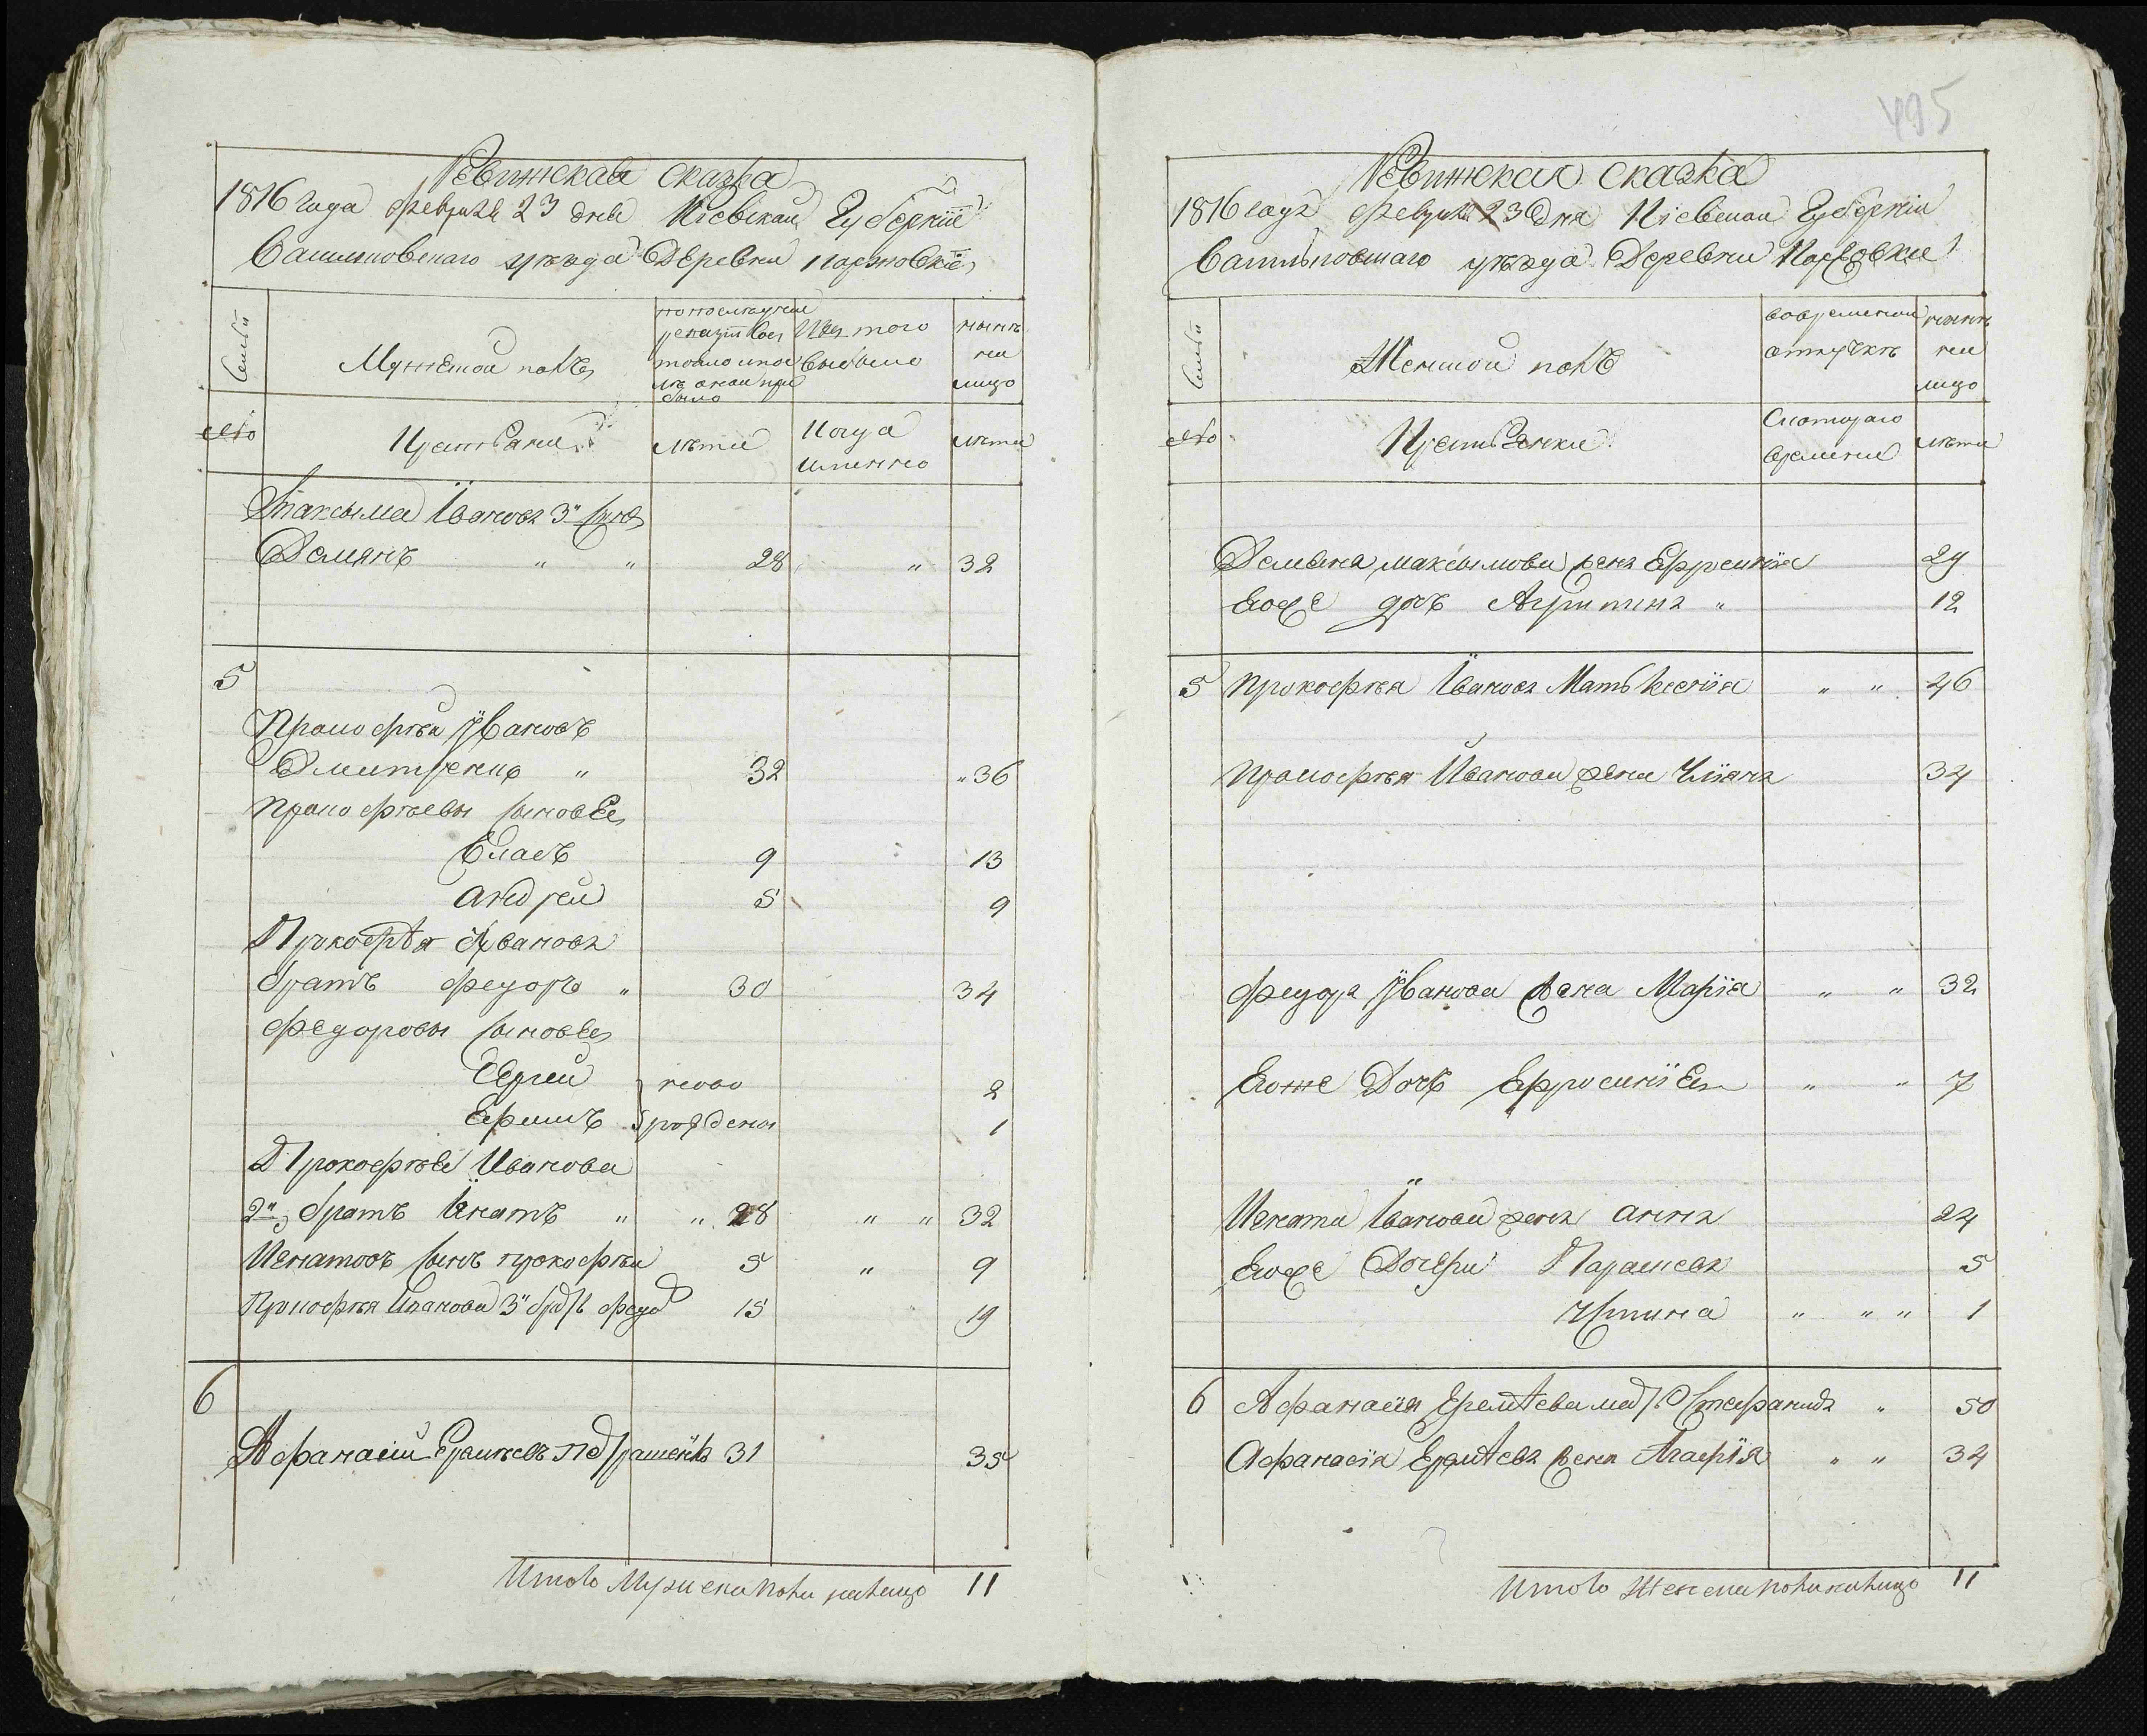 Ревижская сказка
1816 года февраля 23 дня Кіевской Губернии
Васильковскаго уезда Деревни
Семьи
Мужеской полъ
по последней
ревизіи сос
тояло и по
сле оной при
было
Изъ того
выбыло
ныне
на
лицо
№
Крестьяне
лета
Когда
именно
лета
Максыма Іванова 3й сынъ
Демянъ " " 28 " 32
5
Прокофей Ивановъ
Дмитренко " 32 " 36
Прокофеевы сыновье
Власъ 9 13
Андрей 5 9
Прокофея Иванова
братъ федоръ " 30 34
федоровы сыновье
Сергей ново 2
Ефимъ рождены 1
Прокофея Иванова
2й братъ Игнатъ " " 28 " " 32
Игнатовъ сынъ прокофей 5 " 9
Прокофея Иванова 3й братъ федо 15 19
6
Афанасий Еремеевъ 31 35
Итого Мужеска пола налицо 11
495
Ревижская сказка
1816 года февраля 23 дня Кіевской Губерніи
Васильковскаго уезда Деревни
Семьи
Женской полъ
во временной
отлучке
ныне
на
лицо
№
Крестьянки
Скотораго
времени
лета
Демьяна максымова жена Ефросинія 29
Егоже дочь Агрипина " 12
5 Прокофея Іванова Мать Ксенія " " 46
Прокофея Иванова жена Уліяна 34
федора Иванова жена Марія " " 32
Егоже Дочь Ефросинія " " 7
Игната Іванова жена анна 24
Егоже Дочери Параскева 5
Устина " " " 1
6 Афанасія Еремеева мать Стефанида " 50
Афанасія Еремеева жена Агафія " " 34
Итого Женска пола налицо 11